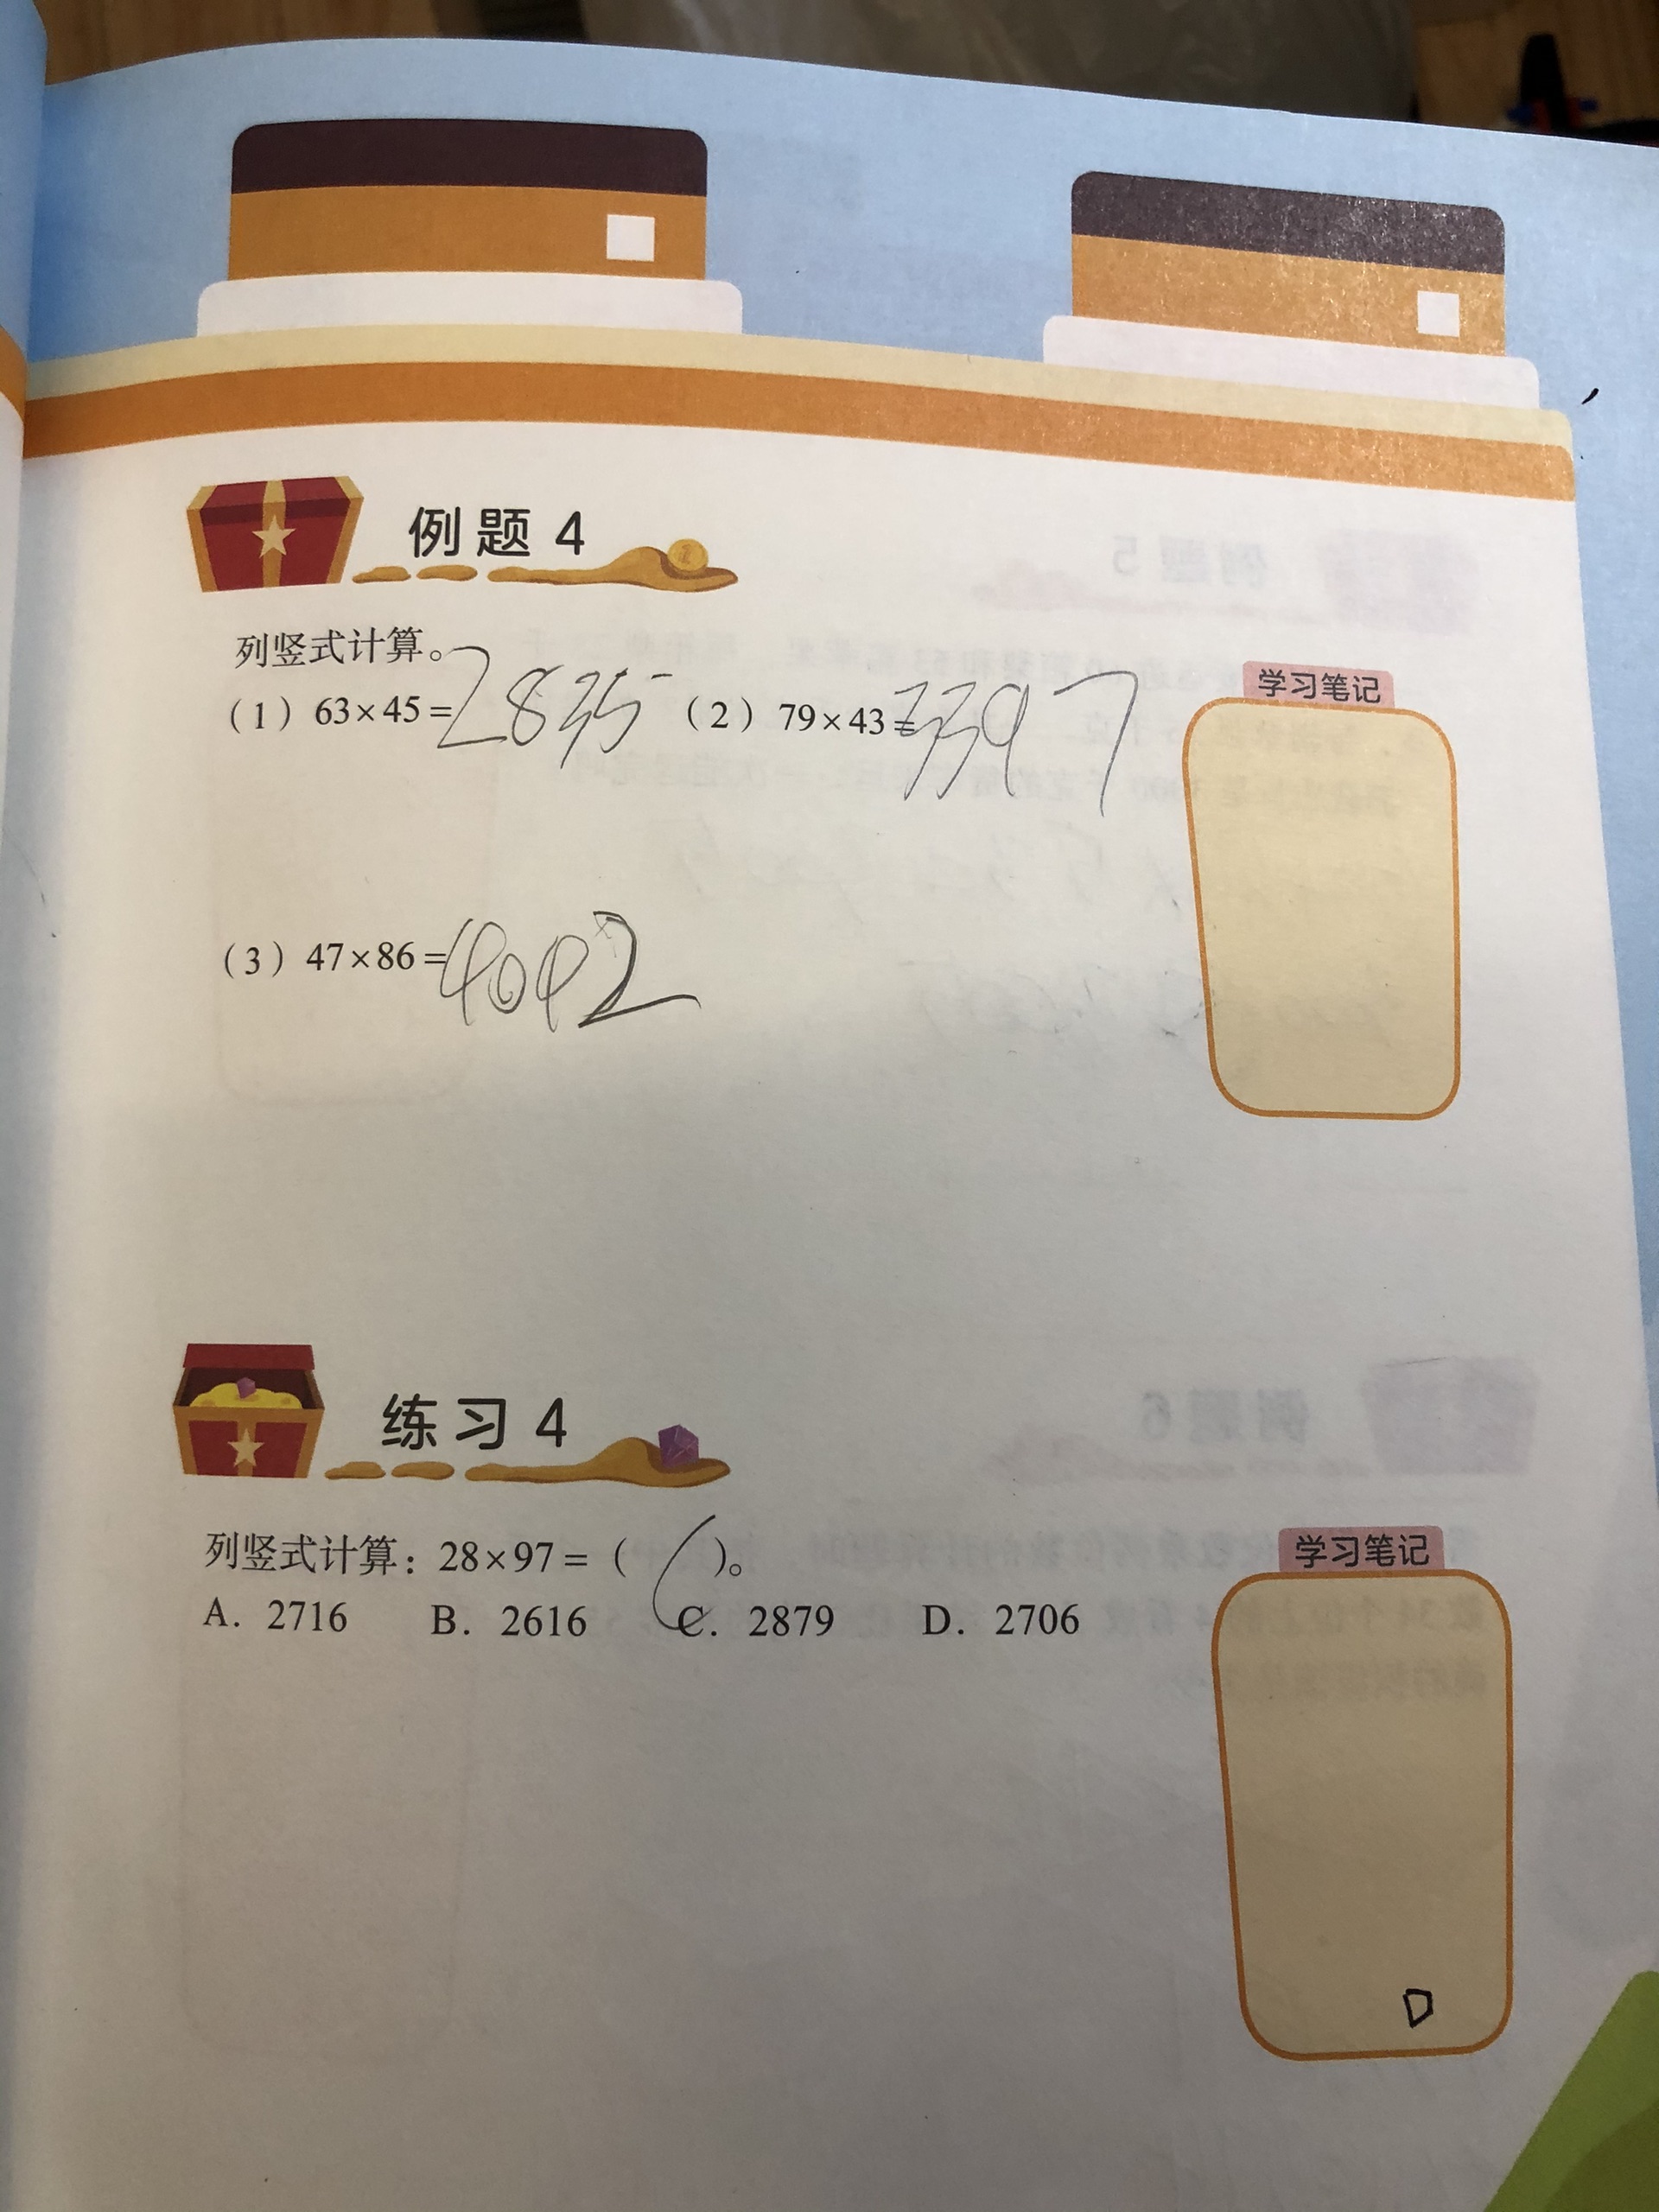 例题 4
列竖式计算。
(1) 63×45=2835 (2) 79×43=3397
学习笔记
(3) 47×86=4042
练习 4
列竖式计算:28×97=( C )。
学习笔记
A. 2716 B. 2616 C. 2879 D. 2706
D